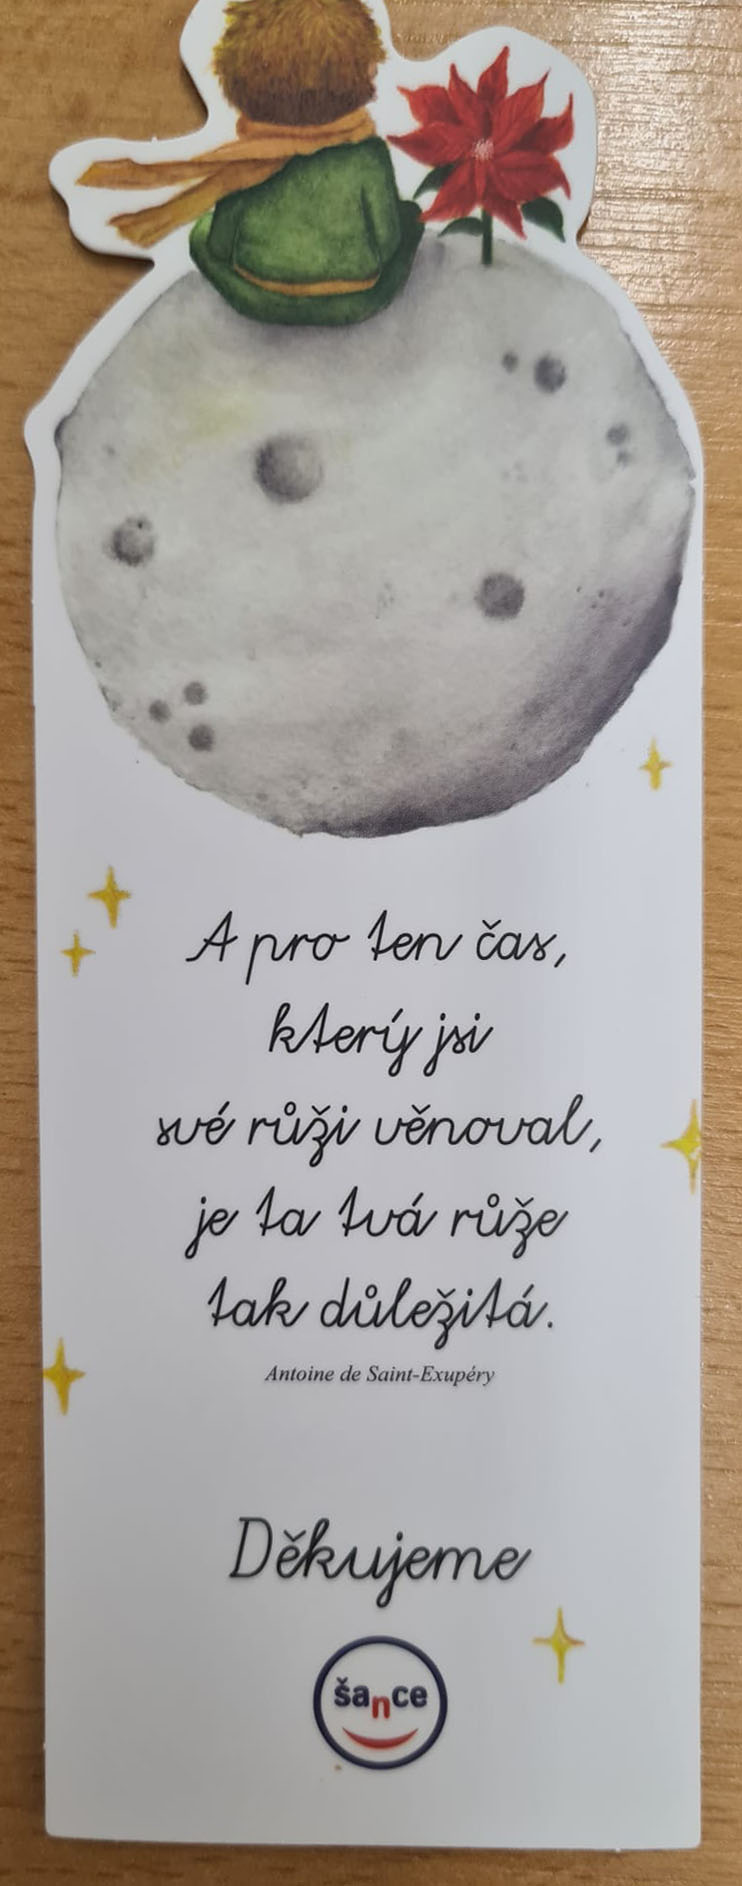 A pro ten čas,
který jsi
své růži věnoval,
je ta tvá růže
tak důležitá.
Antoine de Saint-Exupéry
Děkujeme
šance